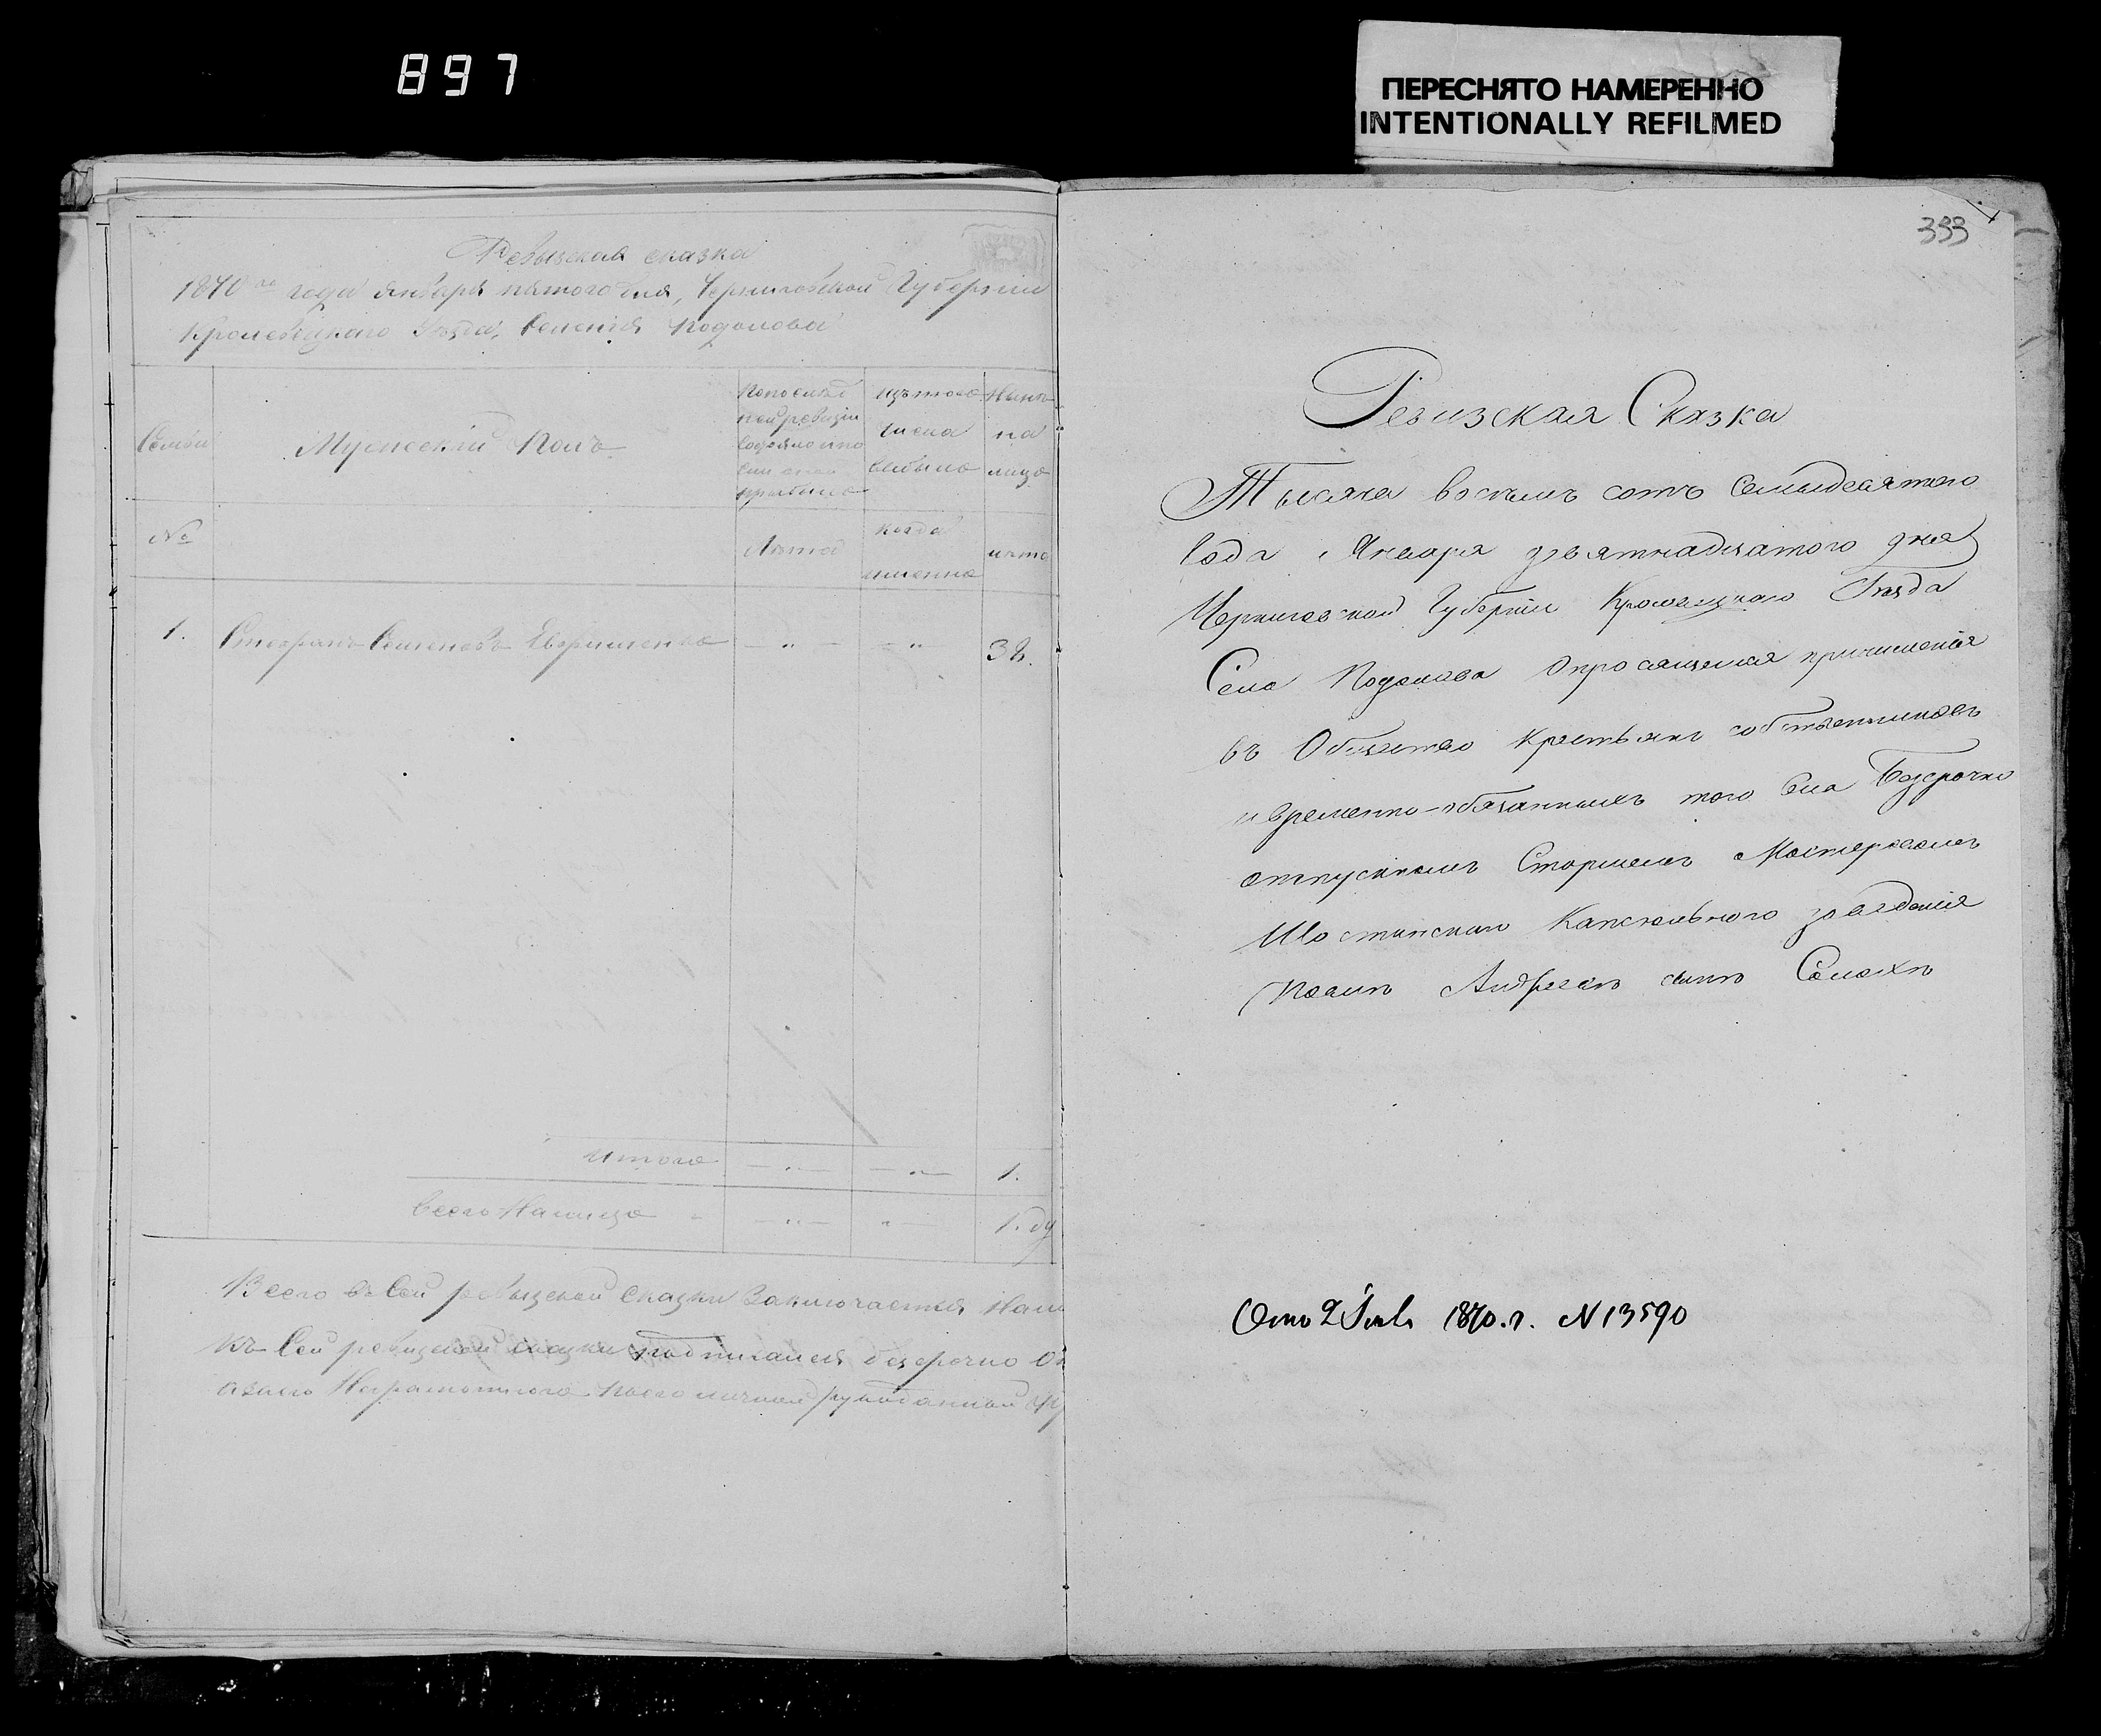 897
ПЕРЕСНЯТО НАМЕРЕННО
INTENTIONALLY REFILMED
Ревызская сказка
1870го года января пятого дня, Черниговской Губерніи
Кролевецкаго Уѣзда, Селенія Подолова
Семьи
Мужескій Полъ
По послѣд
ней ревизіи
состояло
прибыло
изъ того
числа
выбыло
Нынѣ
на
лицо
№
Лѣта
когда
именно
лѣта
1.
Стефанъ Семеновъ
— „ —
— „
38.
Итого
— „ —
— „ —
1.
Всего Налицо
— „ —
„ —
1. ду
Всего въ Сей ревызской Сказки Заключается Нали
Къ Сей ревизской сказки подписался безсрочно От
азаего Неграмотного по его личной рукоданной
393
Ревизская Сказка
Тысяча восемь сотъ Семьдесятого
Года Января девятнадцатого дня
Черниговской Губерніи Кролевецкаго Уѣзда
Села Подолова О просящемся причисленія
въ Общество Крестьянъ собственниковъ
и временно-обязанныхъ того Села Безсрочно
отпускномъ Старшемъ Мастеровомъ
Шостинскаго Капсюльного заведенія
Андреевъ сынъ
1870. г. N 13590